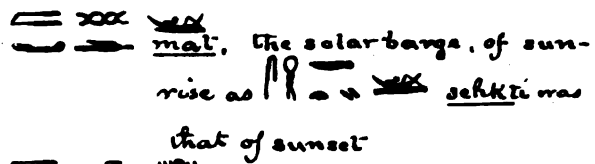 mat, the solar barge, of sun-
rise as sehkti was
that of sunset